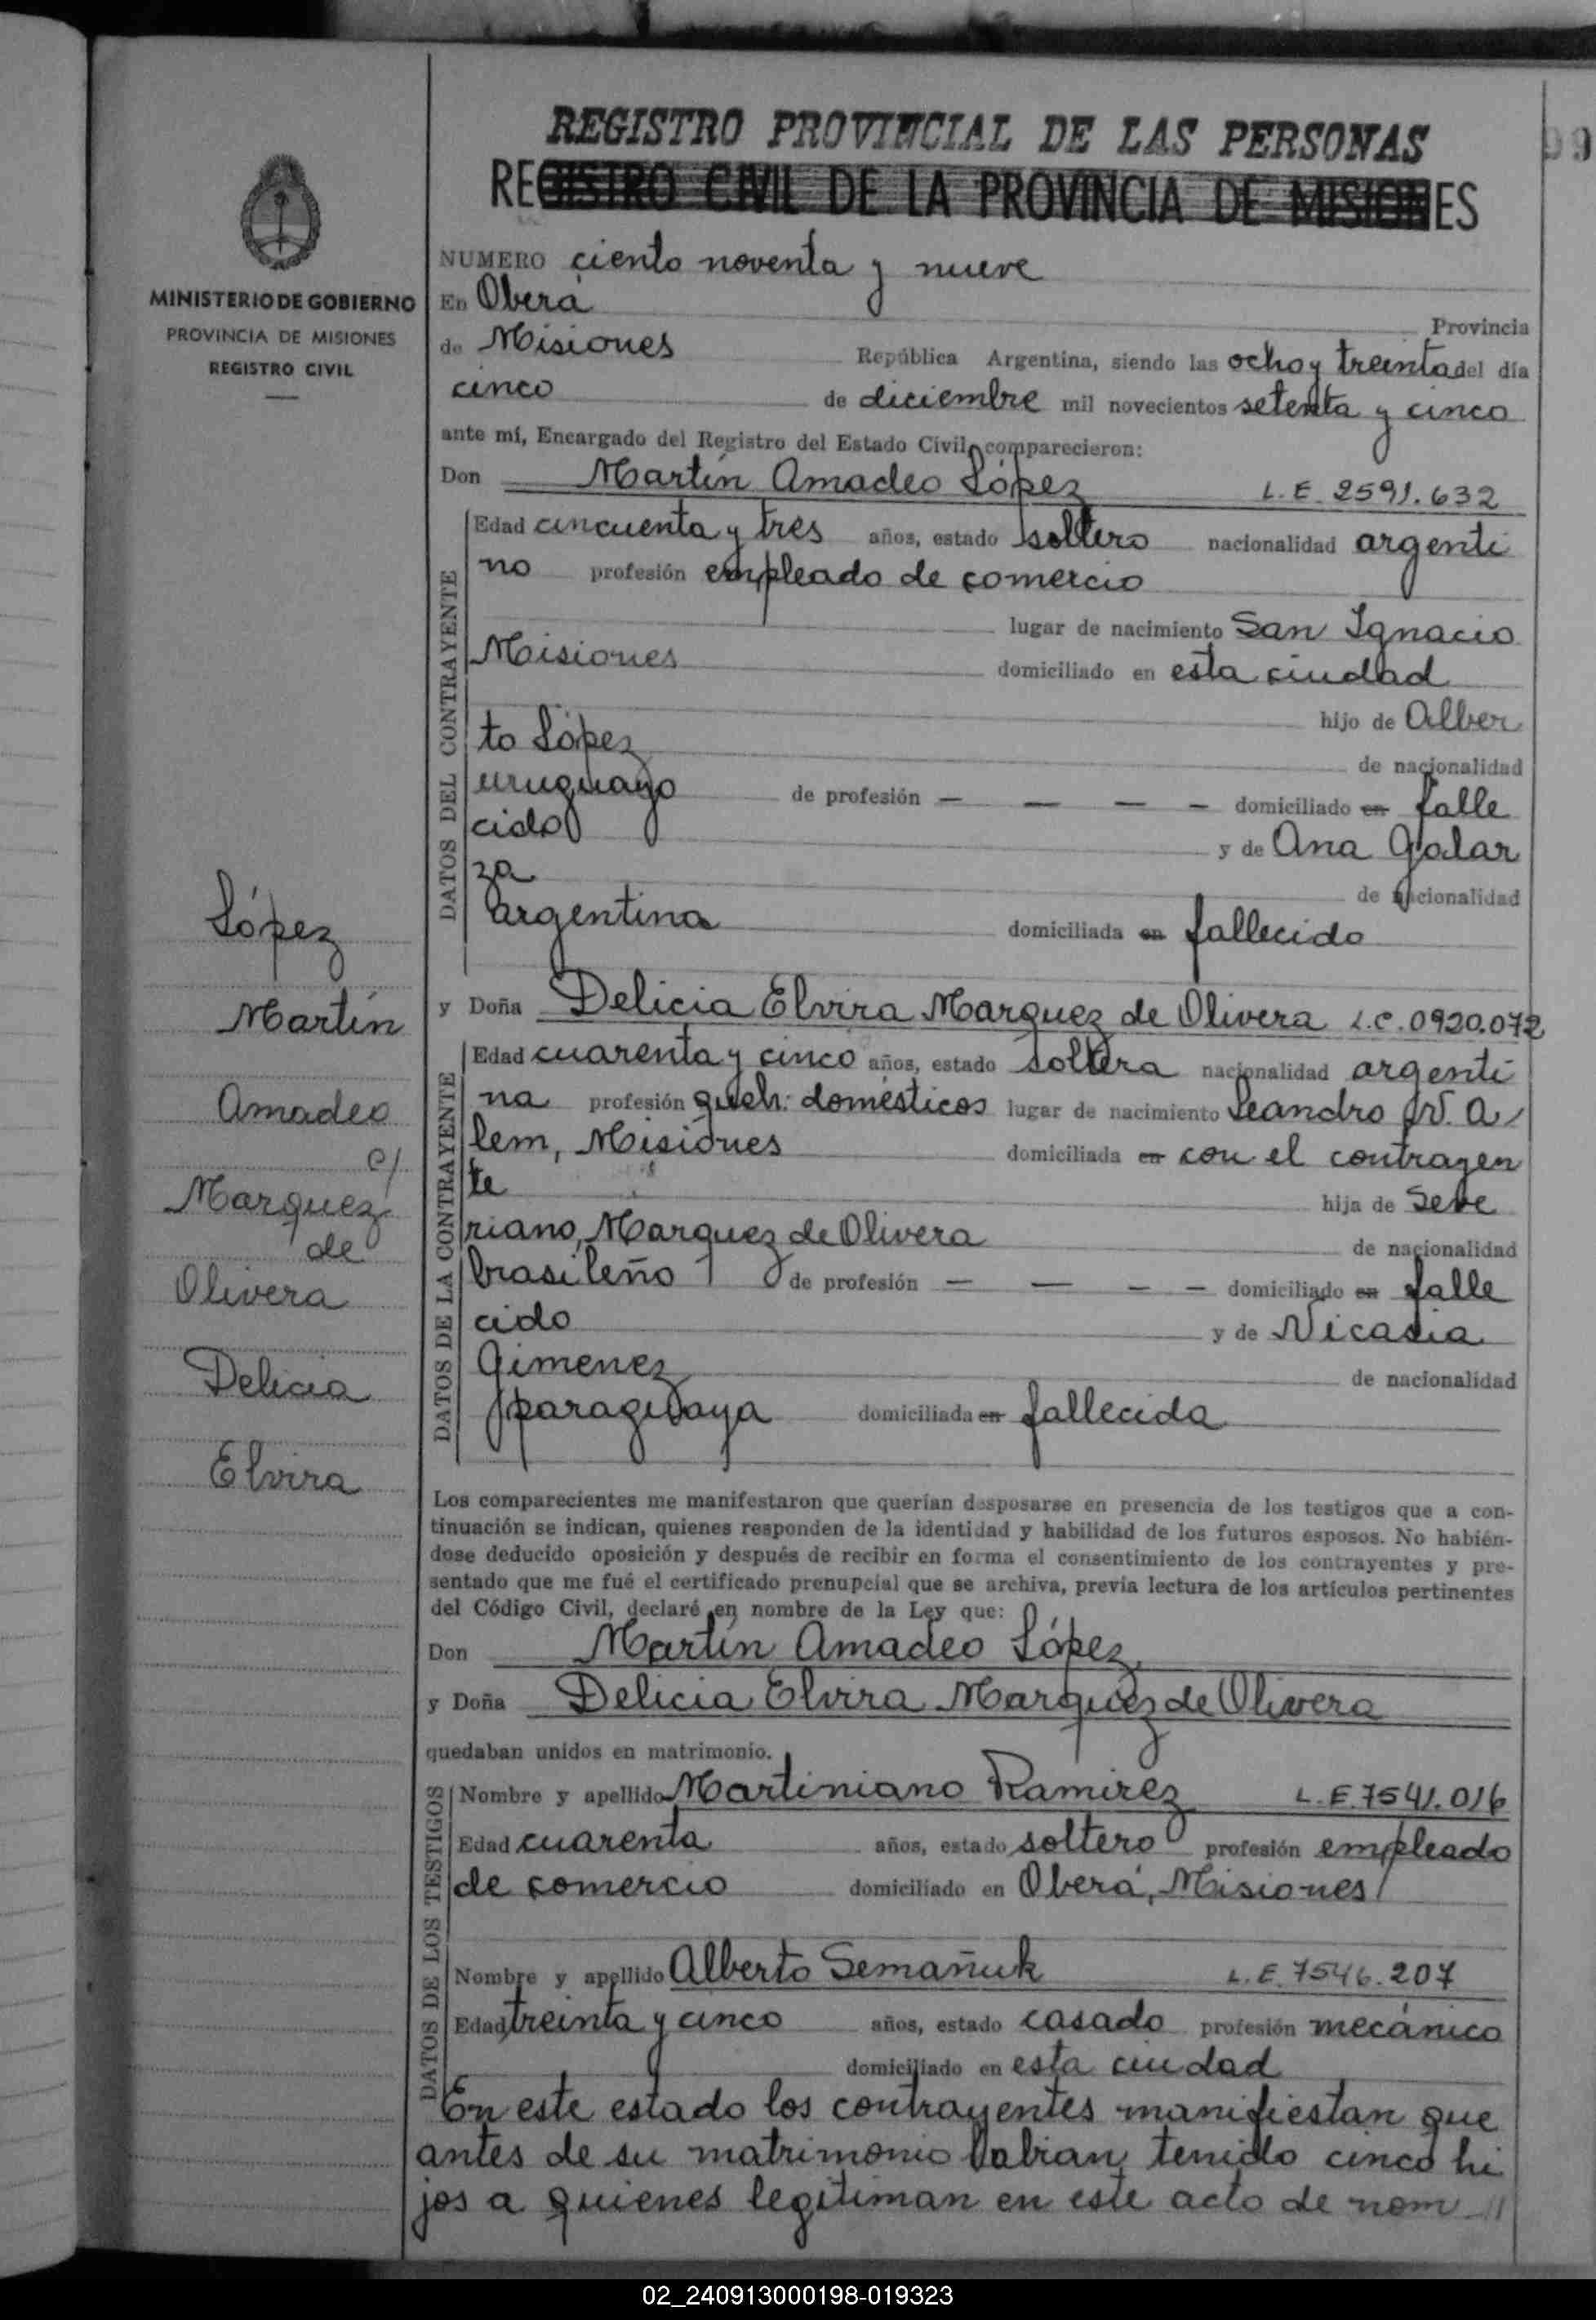 REGISTRO PROVINCIAL DE LAS PERSONAS
REGISTRO CIVIL DE LA PROVINCIA DE MISIONES
99
MINISTERIO DE GOBIERNO
PROVINCIA DE MISIONES
REGISTRO CIVIL
López
Martín
Amadeo
c/
Marquez
de
Olivera
Delicia
Elvira
NUMERO ciento noventa y nueve
En Oberá Provincia
de Misiones República Argentina, siendo las ocho y treinta del día
cinco de diciembre mil novecientos setenta y cinco
ante mí, Encargado del Registro del Estado Civil, comparecieron:
Don Martín Amadeo López L.E. 2591.632
DATOS DEL CONTRAYENTE
Edad cincuenta y tres años, estado soltero nacionalidad argenti
no profesión empleado de comercio
lugar de nacimiento San Ignacio
Misiones domiciliado en esta ciudad
hijo de Alber
to López de nacionalidad
uruguayo de profesión — — — — domiciliado en falle
cido y de Ana Galar
za de nacionalidad
argentina domiciliada en fallecido
y Doña Delicia Elvira Marquez de Olivera L.C. 0920.072
DATOS DE LA CONTRAYENTE
Edad cuarenta y cinco años, estado soltera nacionalidad argenti
na profesión queh: domésticos lugar de nacimiento Leandro N. A
lem, Misiones domiciliada en con el contrayen
te hija de Seve
riano Marquez de Olivera de nacionalidad
brasileño de profesión — — — — domiciliado en falle
cido y de Nicasia
Gimenez de nacionalidad
paraguaya domiciliada en fallecida
Los comparecientes me manifestaron que querían desposarse en presencia de los testigos que a con-
tinuación se indican, quienes responden de la identidad y habilidad de los futuros esposos. No habién-
dose deducido oposición y después de recibir en forma el consentimiento de los contrayentes y pre-
sentado que me fué el certificado prenupcial que se archiva, previa lectura de los artículos pertinentes
del Código Civil, declaré en nombre de la Ley que:
Don Martín Amadeo López
y Doña Delicia Elvira Marquez de Olivera
quedaban unidos en matrimonio.
DATOS DE LOS TESTIGOS
Nombre y apellido Martiniano Ramirez L.E. 7541.016
Edad cuarenta años, estado soltero profesión empleado
de comercio domiciliado en Oberá, Misiones
Nombre y apellido Alberto Semañuk L.E. 7546.207
Edad treinta y cinco años, estado casado profesión mecánico
domiciliado en esta ciudad
En este estado los contrayentes manifiestan que
antes de su matrimonio habian tenido cinco hi
jos a quienes legitiman en este acto de nom //
02_240913000198-019323